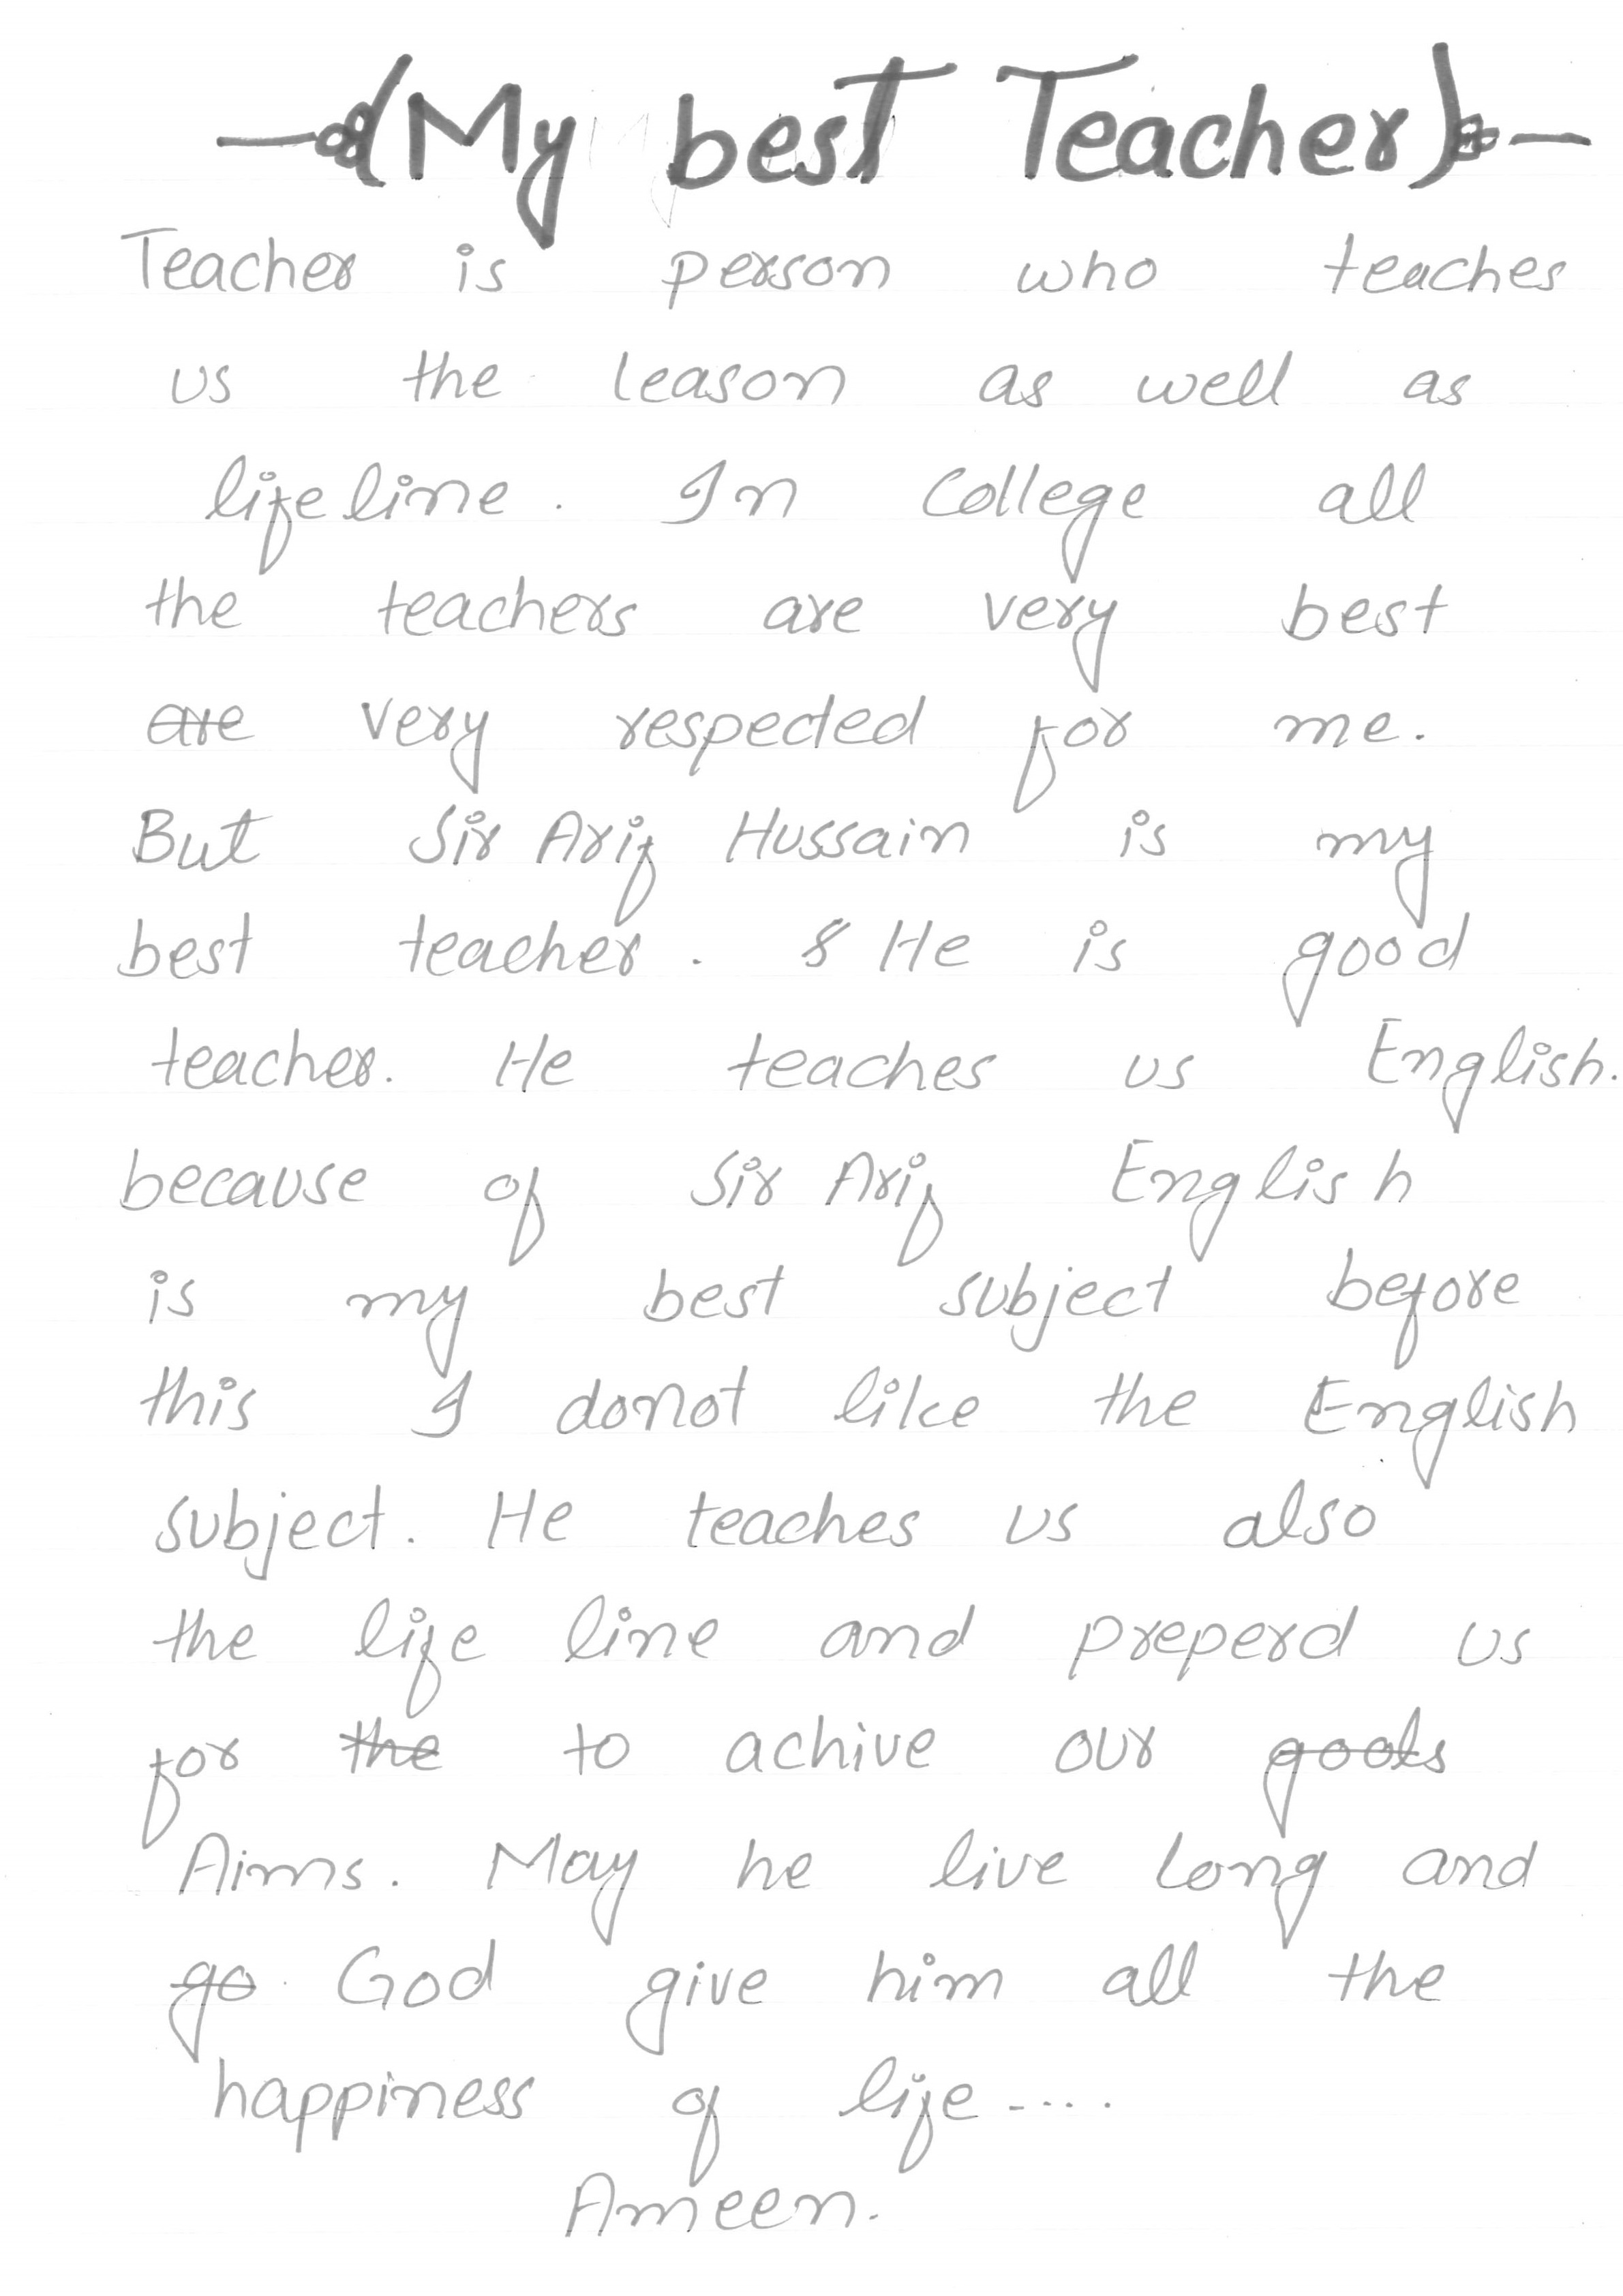 (My best Teacher)
Teacher is person who teaches
us the leason as well as
lifeline. In College all
the teachers are very best
are very respected for me.
But Sir Arif Hussain is my
best teacher. & He is good
teacher. He teaches us English.
because of Sir Arif English
is my best subject before
this I donot like the English
subject. He teaches us also
the life line and preperd us
for the to achive our goals
Aims. May he live long and
go God give him all the
happiness of life ....
Ameen.